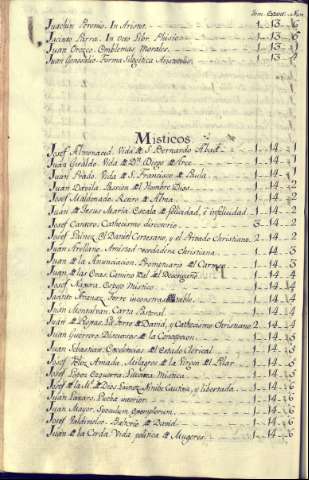 Tom. Estant. Num.
Joachin Perenio. In Aristot. 1. 13. 6
Jacinto Parra. In octo Libr. Phisico. 1. 13. 6
Juan Orozco. Emblemas Morales. 1. 13.
Juan Genesdio. Forma Silogistica Aristotelis. 1. 13. 2
Misticos
Josef Almonacid. Vida de S. Bernardo Abad. 1. 14. 1
Juan Giraldo. Vida de Dn. Diego de Arce. 1. 14. 1
Juan Prado. Vida de S. Francisco de Paula. 1. 14. 1
Juan Davila. Passion del Hombre Dios. 1. 14. 2
Josef Maldonado. Retiro de Alma. 1. 14. 2
Juan de Jesus Maria. Escala de felicidad, é infelicidad. 1. 14. 2
Josef Canturo. Cathecismo directorio. 3. 14. 2
Josef Lainez. El Daniel Cortesano, y el Privado Christiano. 2. 14. 2
Juan Arellano. Amistad verdadera Christiana. 1. 14. 3
Juan de la Anunciacion. Promptuario del Carmen. 1. 14. 3
Juan de las Ovas. Camino del
Josef Naxera. Espejo Mistico. 1. 14. 4
Jacinto Aranaz. Torre incontrastable. 1. 14. 4
Juan Montalvan. Carta Pastoral. 1. 14. 4
Juan de Reyna. La Torre de David, y Cathecismo Christiano. 2. 14. 4
Juan Guerrero. Discursos de la Concepcion. 1. 14. 5
Juan Sebastian. Excelencias del Estado Clerical. 1. 14. 5
Josef Felix Amada. Milagros de la Virgen del Pilar. 1. 14. 5
Josef Lopez Ezquerra. Lucerna Mistica. 1. 14. 5
Josef de la Me. de Dios. Ninibe Cautiva, y libertada. 1. 14. 6
Juan Lanaro. Lucha interior. 1. 14. 6
Juan Mayor. Speculum Exemplorum. 1. 14. 6
Josef Valdivielso. Psalterio de David. 1. 14. 6
Juan de la Cerda. Vida politica de Mugeres. 1. 14. 6